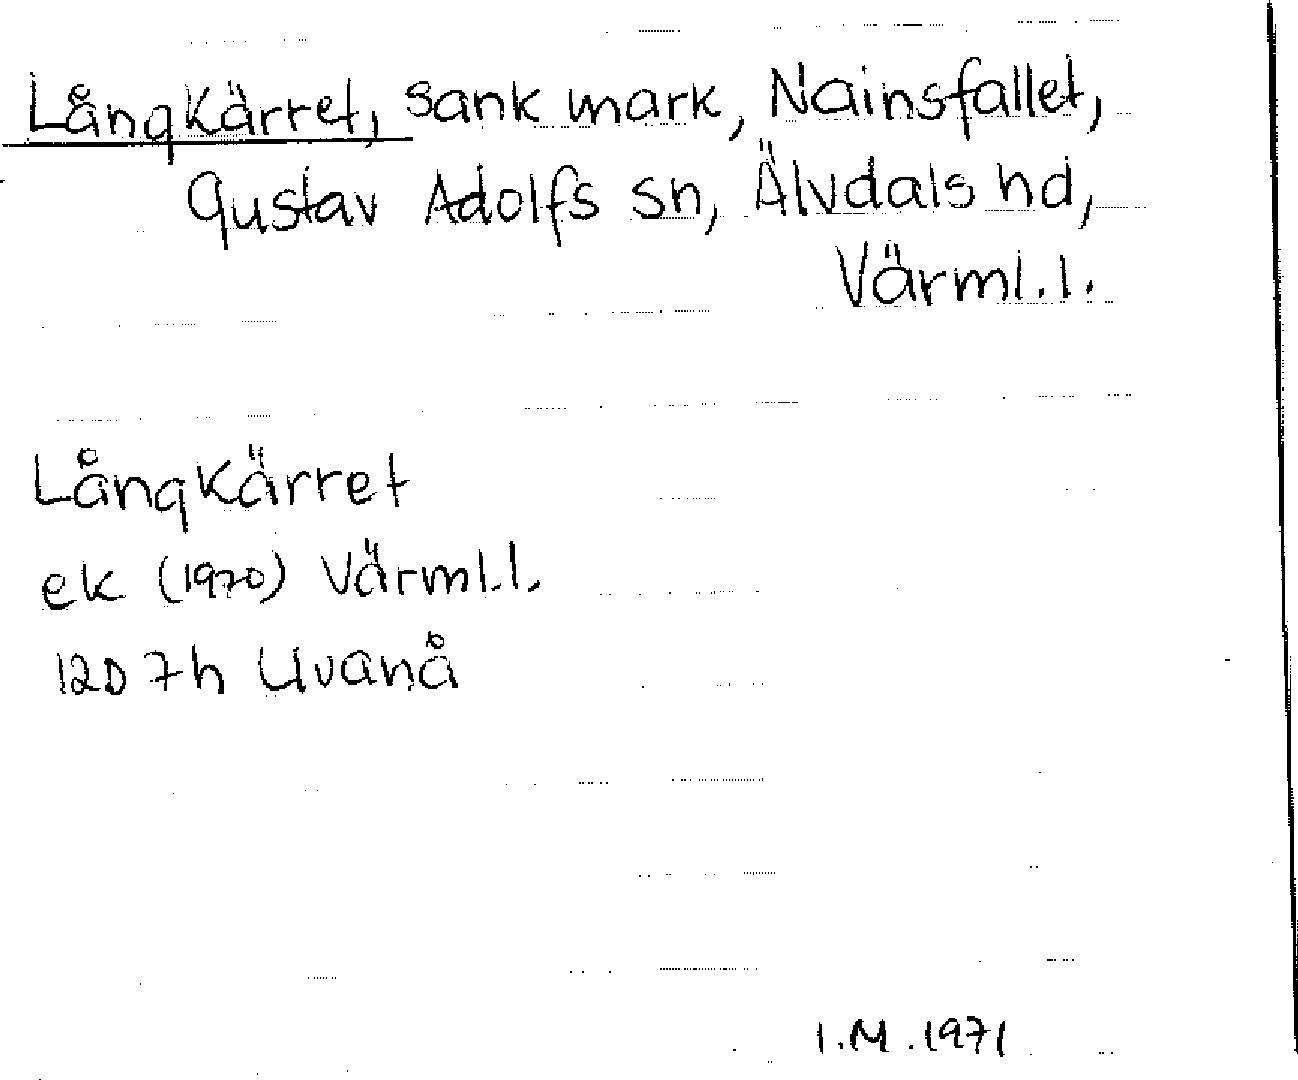 Långkärret, sank mark, Nainsfallet,
Gustav Adolfs sn, Älvdals hd,
Värml.l.
Långkärret
ek (1970) Värml.l.
12D 7h Uvanå
I.M.1971